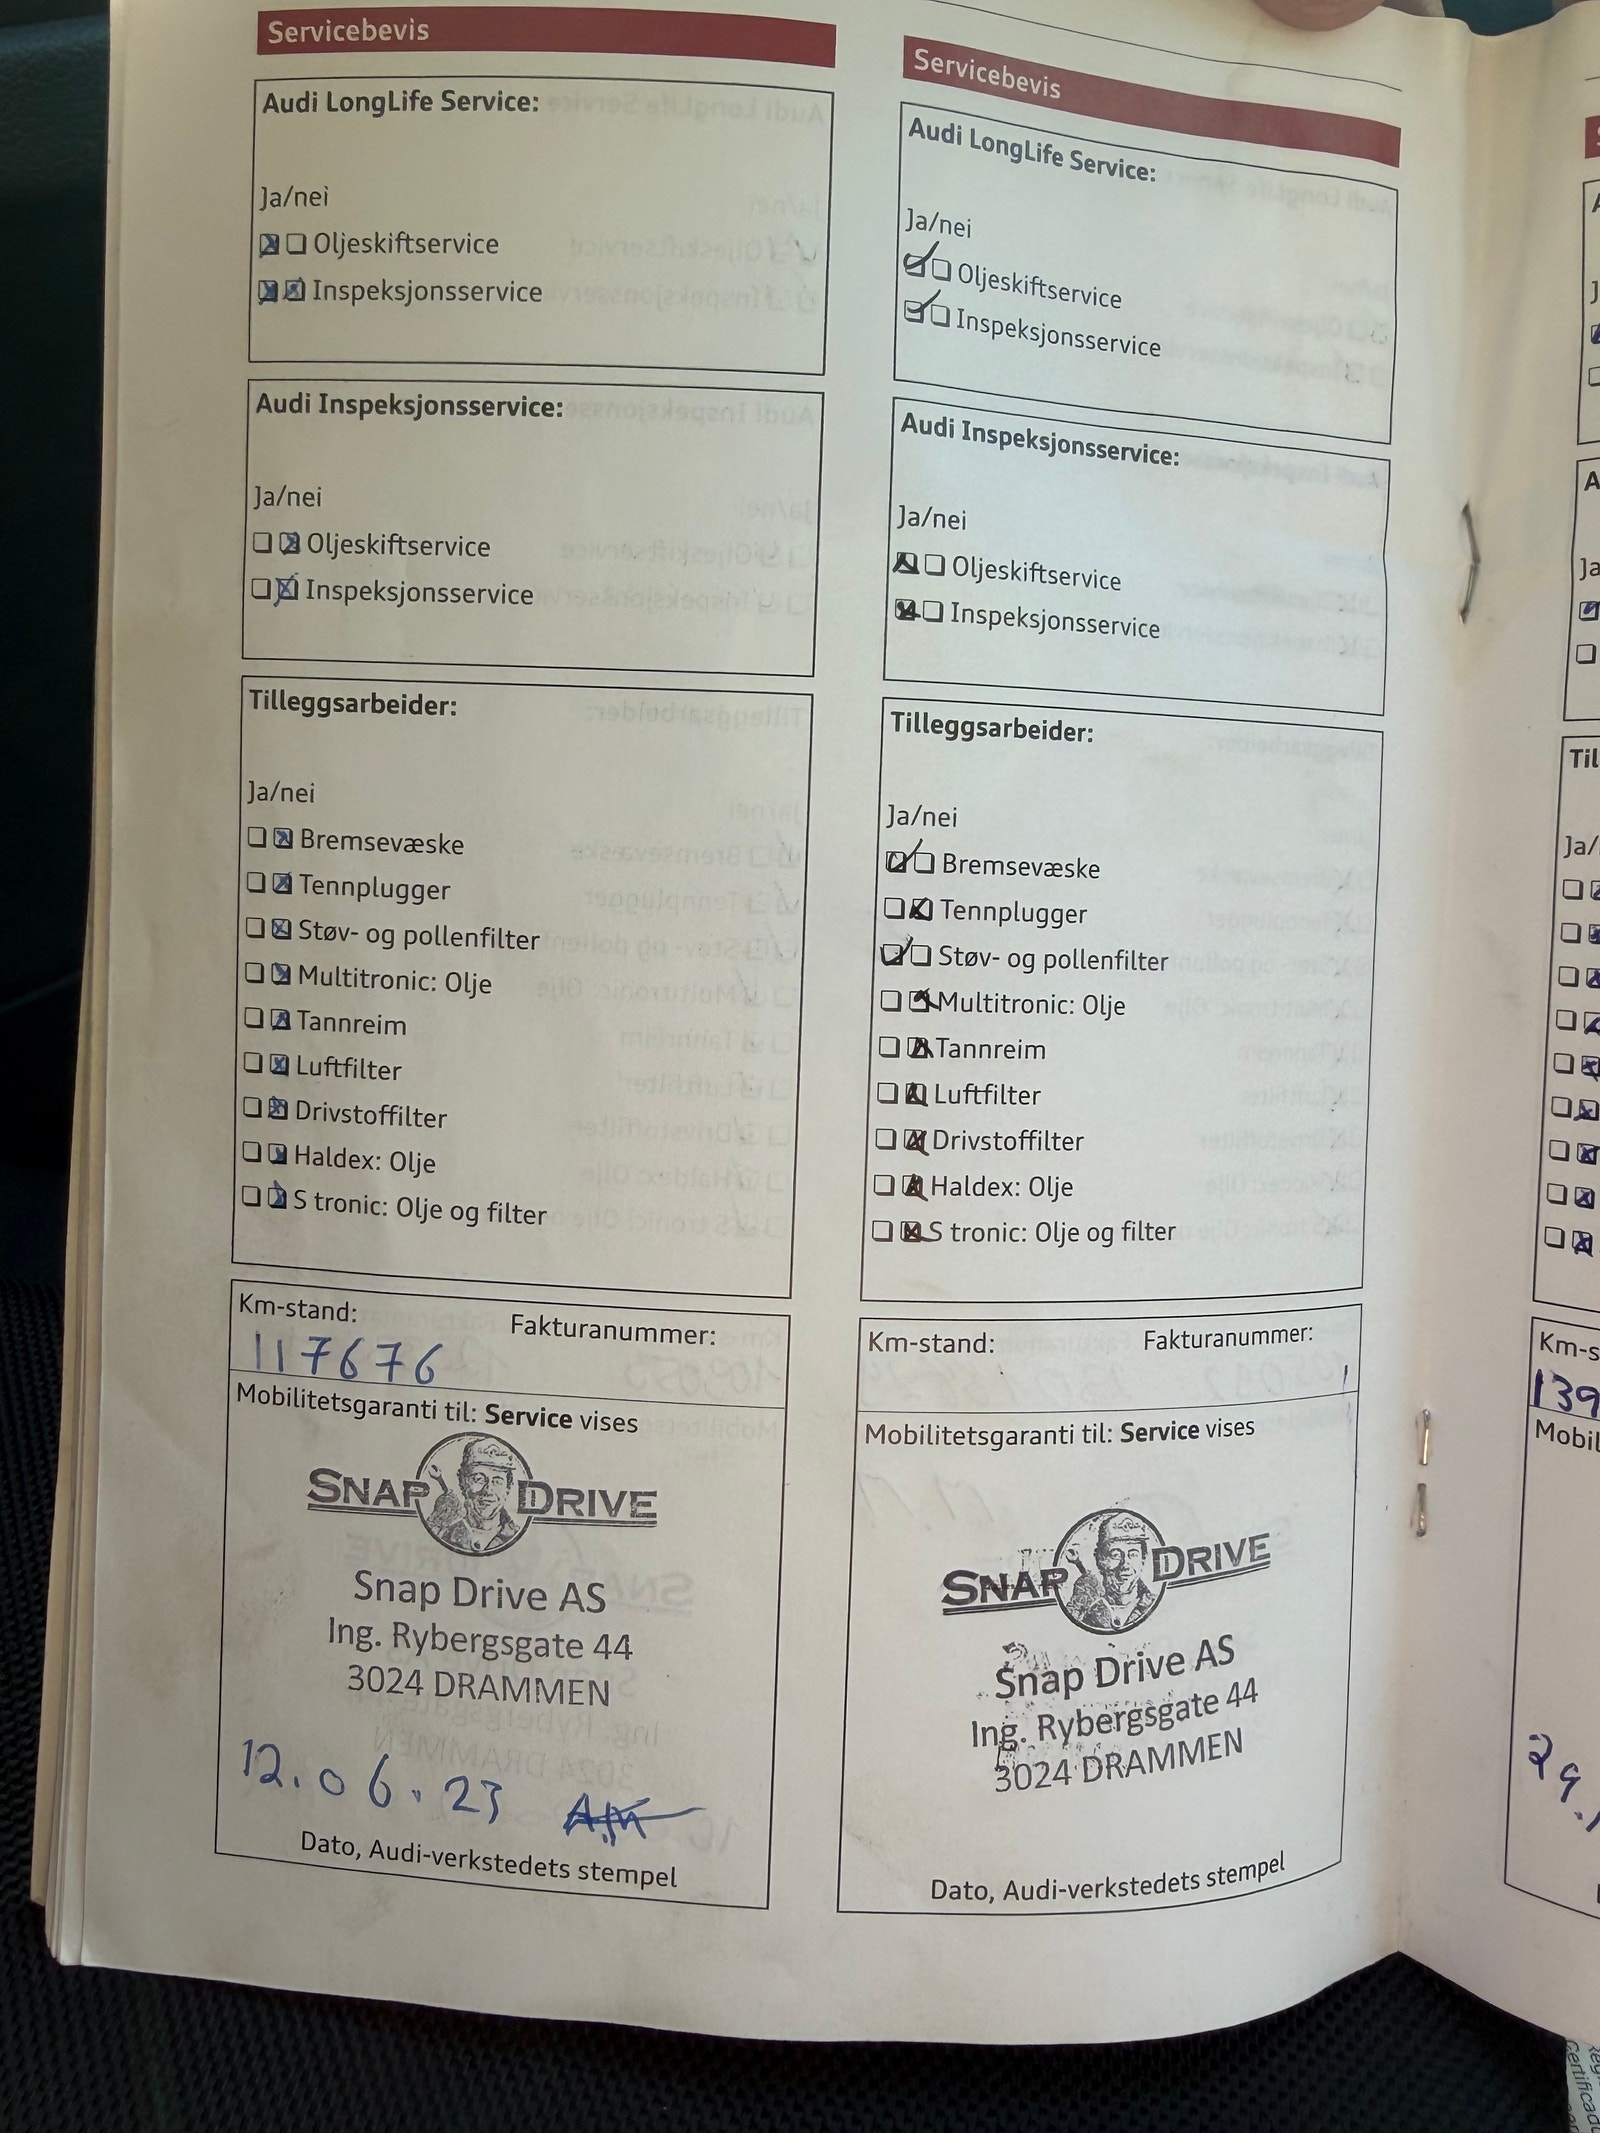 Servicebevis
Audi LongLife Service:
Ja/nei
Oljeskiftservice
Inspeksjonsservice
Audi Inspeksjonsservice:
Ja/nei
Oljeskiftservice
Inspeksjonsservice
Tilleggsarbeider:
Ja/nei
Bremsevæske
Tennplugger
Støv- og pollenfilter
Multitronic: Olje
Tannreim
Luftfilter
Drivstoffilter
Haldex: Olje
S tronic: Olje og filter
Km-stand: Fakturanummer:
117676
Mobilitetsgaranti til: Service vises
SNAP DRIVE
Snap Drive AS
Ing. Rybergsgate 44
3024 DRAMMEN
12.06.23
Dato, Audi-verkstedets stempel
Servicebevis
Audi LongLife Service:
Ja/nei
Oljeskiftservice
Inspeksjonsservice
Audi Inspeksjonsservice:
Ja/nei
Oljeskiftservice
Inspeksjonsservice
Tilleggsarbeider:
Ja/nei
Bremsevæske
Tennplugger
Støv- og pollenfilter
Multitronic: Olje
Tannreim
Luftfilter
Drivstoffilter
Haldex: Olje
S tronic: Olje og filter
Km-stand: Fakturanummer:
Mobilitetsgaranti til: Service vises
SNAP DRIVE
Snap Drive AS
Ing. Rybergsgate 44
3024 DRAMMEN
Dato, Audi-verkstedets stempel
Til
Ja/
Km-s
139
Mobil
29.